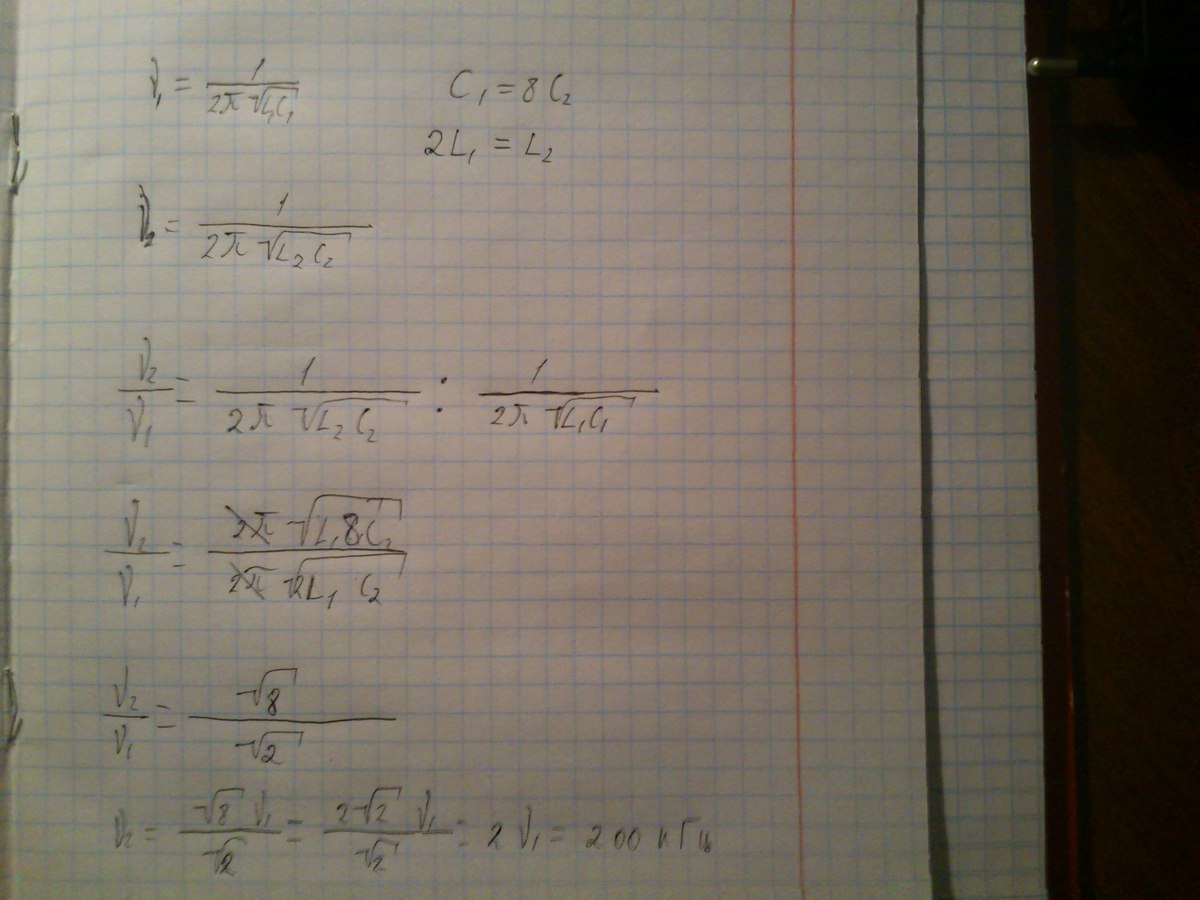 ν₁ = 1 / (2π √(L₁C₁))    C₁ = 8C₂
2L₁ = L₂
ν₂ = 1 / (2π √(L₂C₂))
ν₂/ν₁ = 1 / (2π √(L₂C₂)) : 1 / (2π √(L₁C₁))
ν₂/ν₁ = 2π √(L₁8C₂) / (2π √(2L₁C₂))
ν₂/ν₁ = √8 / √2
ν₂ = √8 ν₁ / √2 = 2√2 ν₁ / √2 = 2ν₁ = 200 кГц